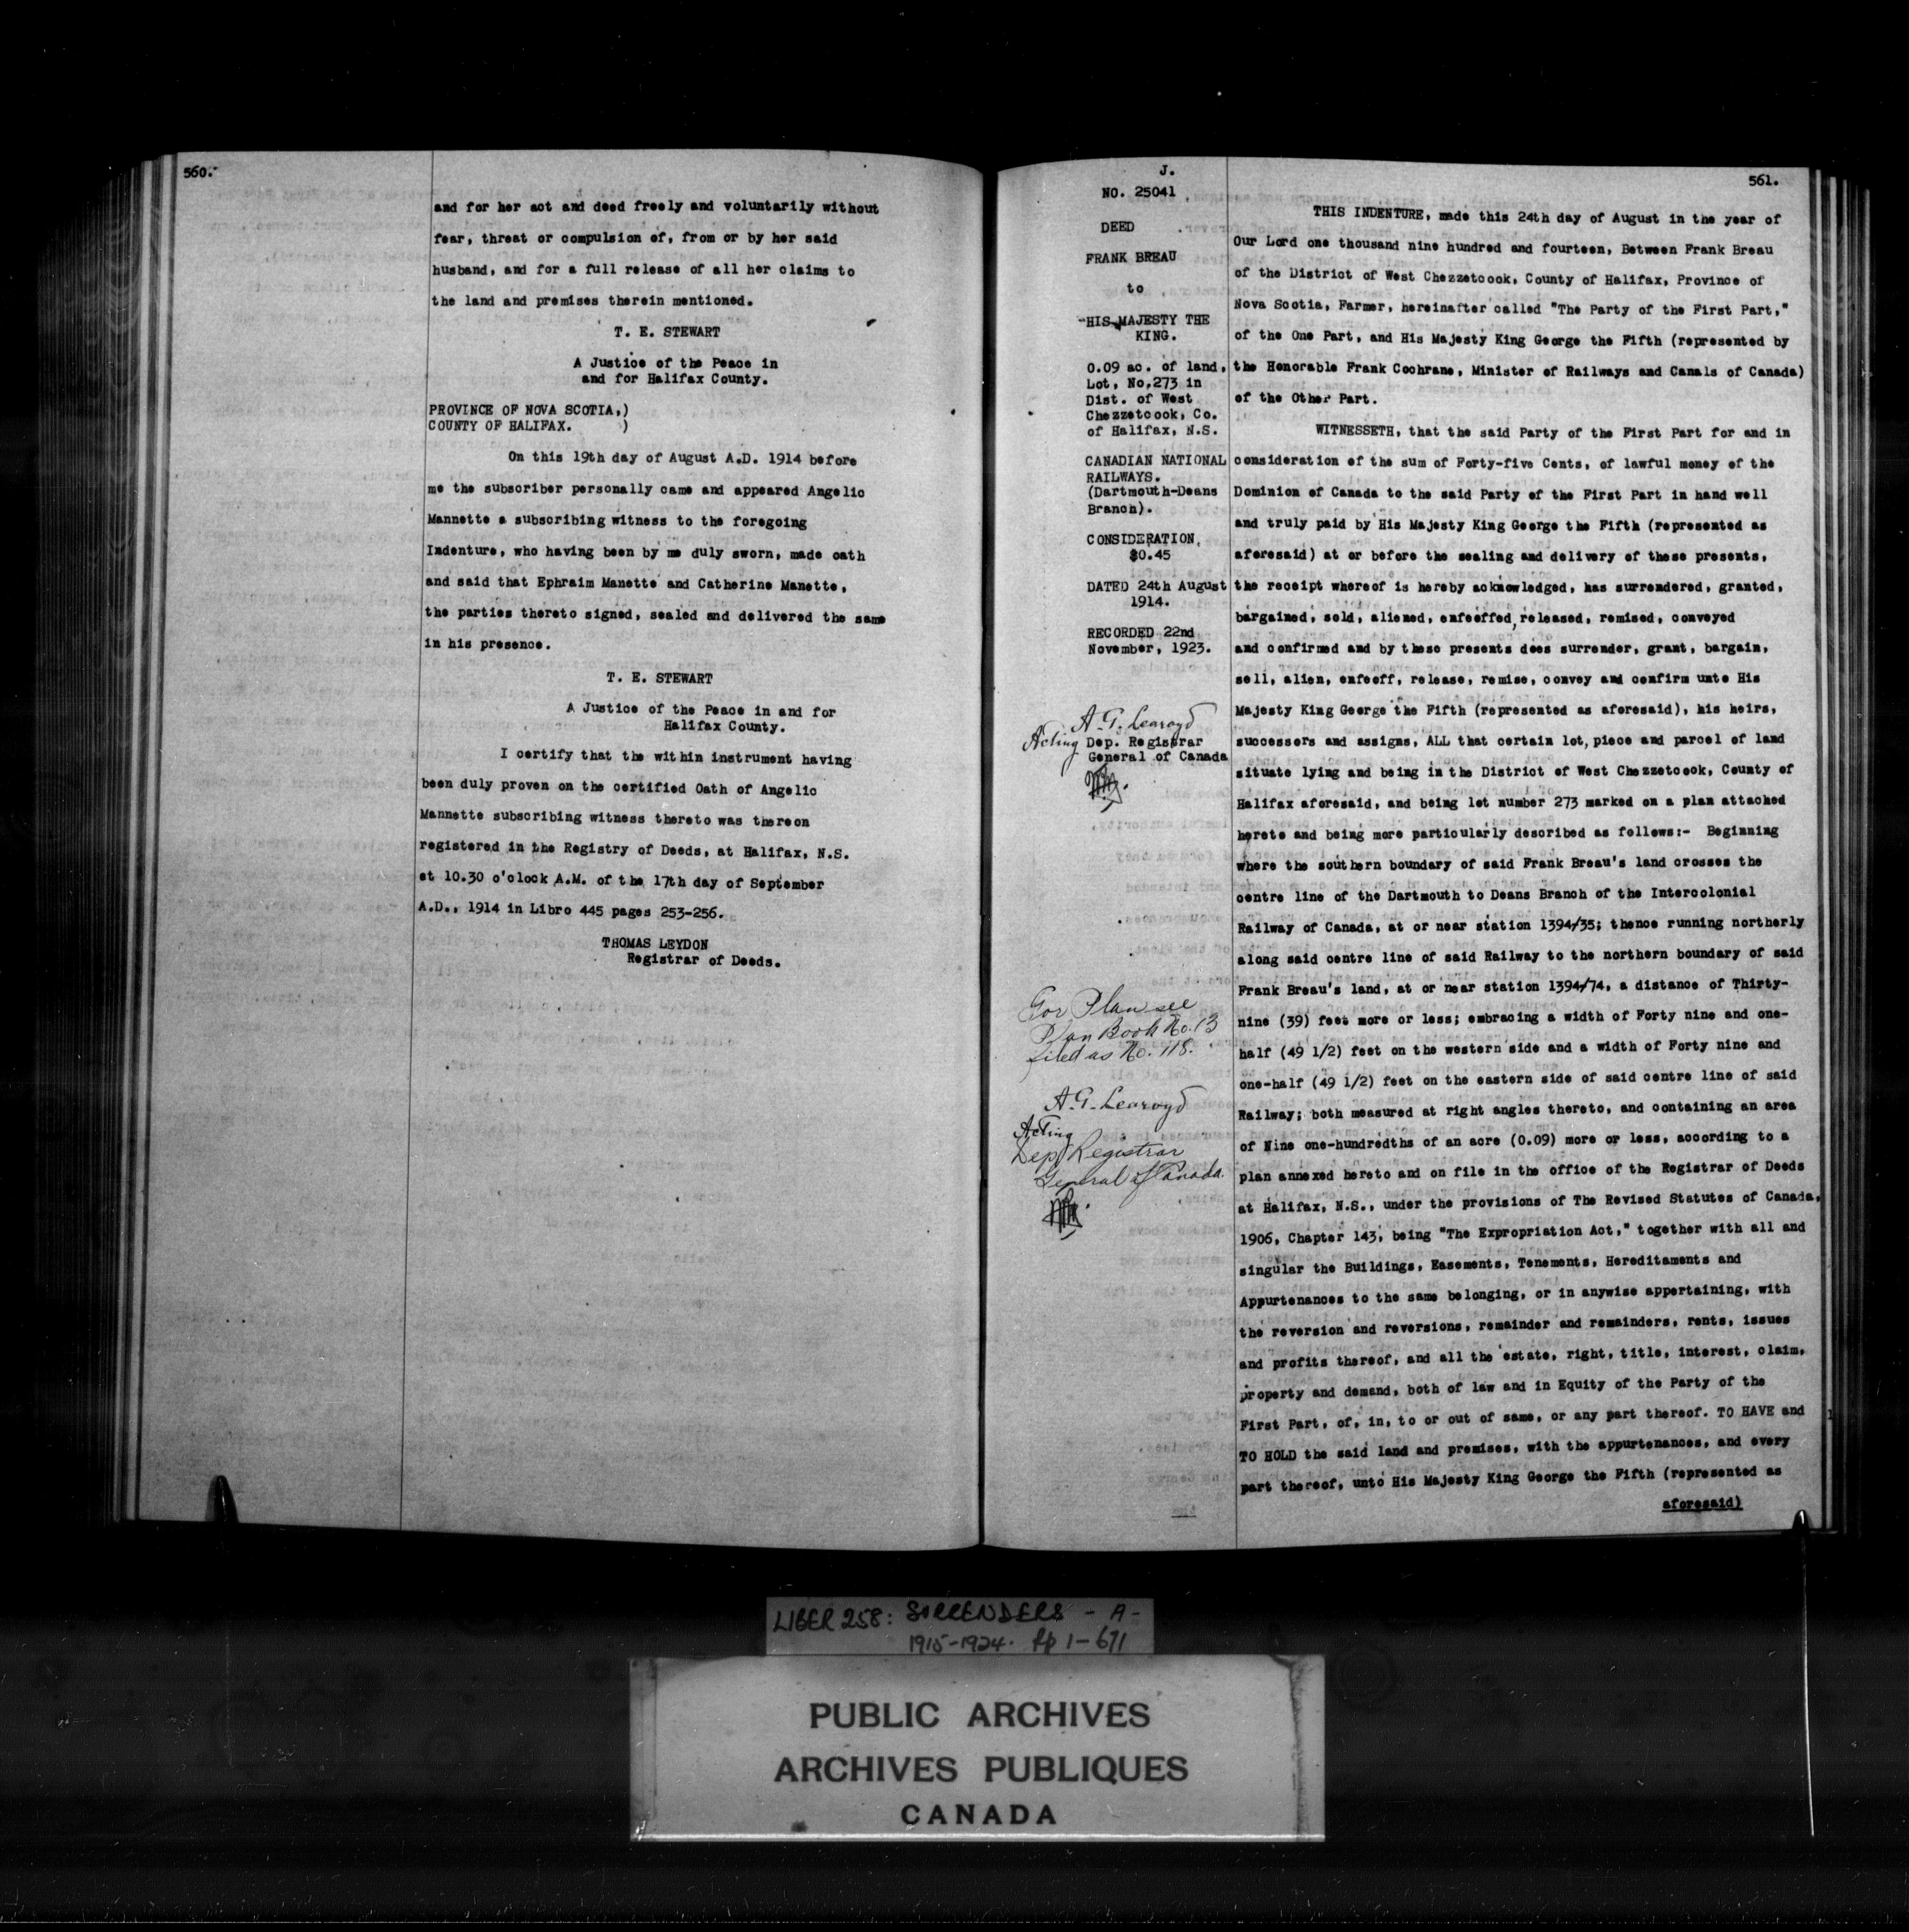 560.
and for her act and deed freely and voluntarily without
fear, threat or compulsion of, from or by her said
husband, and for a full release of all her claims to
the land and premises therein mentioned.
T. E. STEWART
A Justice of the Peace in
and for Halifax County.
PROVINCE OF NOVA SCOTIA,)
COUNTY OF HALIFAX. )
On this 19th day of August A.D. 1914 before
me the subscriber personally came and appeared Angelic
Mannette a subscribing witness to the foregoing
Indenture, who having been by me duly sworn, made oath
and said that Ephraim Manette and Catherine Manette,
the parties thereto signed, sealed and delivered the same
in his presence.
T. E. STEWART
A Justice of the Peace in and for
Halifax County.
I certify that the within instrument having
been duly proven on the certified Oath of Angelic
Mannette subscribing witness thereto was thereon
registered in the Registry of Deeds, at Halifax, N.S.
at 10.30 o'clock A.M. of the 17th day of September
A.D., 1914 in Libro 445 pages 253-256.
THOMAS LEYDON
Registrar of Deeds.
J.
NO. 25041
DEED
FRANK BREAU
to
HIS MAJESTY THE
KING.
0.09 ac. of land,
Lot, No.273 in
Dist. of West
Chezzetcook, Co.
of Halifax, N.S.
CANADIAN NATIONAL
RAILWAYS.
(Dartmouth-Deans
Branch).
CONSIDERATION,
$0.45
DATED 24th August
1914.
RECORDED 22nd
November, 1923.
A. G. Learoyd
Acting Dep. Registrar
General of Canada
For Plan see
Plan Book No. 13
filed as No. 118.
A. G. Learoyd
Acting
Dep Registrar
General of Canada.
561.
THIS INDENTURE, made this 24th day of August in the year of
Our Lord one thousand nine hundred and fourteen, Between Frank Breau
of the District of West Chezzetcook, County of Halifax, Province of
Nova Scotia, Farmer, hereinafter called "The Party of the First Part,"
of the One Part, and His Majesty King George the Fifth (represented by
the Honorable Frank Cochrane, Minister of Railways and Canals of Canada)
of the Other Part.
WITNESSETH, that the said Party of the First Part for and in
consideration of the sum of Forty-five Cents, of lawful money of the
Dominion of Canada to the said Party of the First Part in hand well
and truly paid by His Majesty King George the Fifth (represented as
aforesaid) at or before the sealing and delivery of these presents,
the receipt whereof is hereby acknowledged, has surrendered, granted,
bargained, sold, aliened, enfeoffed, released, remised, conveyed
and confirmed and by these presents does surrender, grant, bargain,
sell, alien, enfeoff, release, remise, convey and confirm unto His
Majesty King George the Fifth (represented as aforesaid), his heirs,
successors and assigns, ALL that certain lot, piece and parcel of land
situate lying and being in the District of West Chezzetcook, County of
Halifax aforesaid, and being lot number 273 marked on a plan attached
hereto and being more particularly described as follows:- Beginning
where the southern boundary of said Frank Breau's land crosses the
centre line of the Dartmouth to Deans Branch of the Intercolonial
Railway of Canada, at or near station 1394/35; thence running northerly
along said centre line of said Railway to the northern boundary of said
Frank Breau's land, at or near station 1394/74, a distance of Thirty-
nine (39) feet more or less; embracing a width of Forty nine and one-
half (49 1/2) feet on the western side and a width of Forty nine and
one-half (49 1/2) feet on the eastern side of said centre line of said
Railway; both measured at right angles thereto, and containing an area
of Nine one-hundredths of an acre (0.09) more or less, according to a
plan annexed hereto and on file in the office of the Registrar of Deeds
at Halifax, N.S., under the provisions of The Revised Statutes of Canada,
1906, Chapter 143, being "The Expropriation Act," together with all and
singular the Buildings, Easements, Tenements, Hereditaments and
Appurtenances to the same belonging, or in anywise appertaining, with
the reversion and reversions, remainder and remainders, rents, issues
and profits thereof, and all the estate, right, title, interest, claim,
property and demand, both of law and in Equity of the Party of the
First Part, of, in, to or out of same, or any part thereof. TO HAVE and
TO HOLD the said land and premises, with the appurtenances, and every
part thereof, unto His Majesty King George the Fifth (represented as
aforesaid)
LIBER 258: SURRENDERS - A -
1915-1924. pp 1-671
PUBLIC ARCHIVES
ARCHIVES PUBLIQUES
CANADA